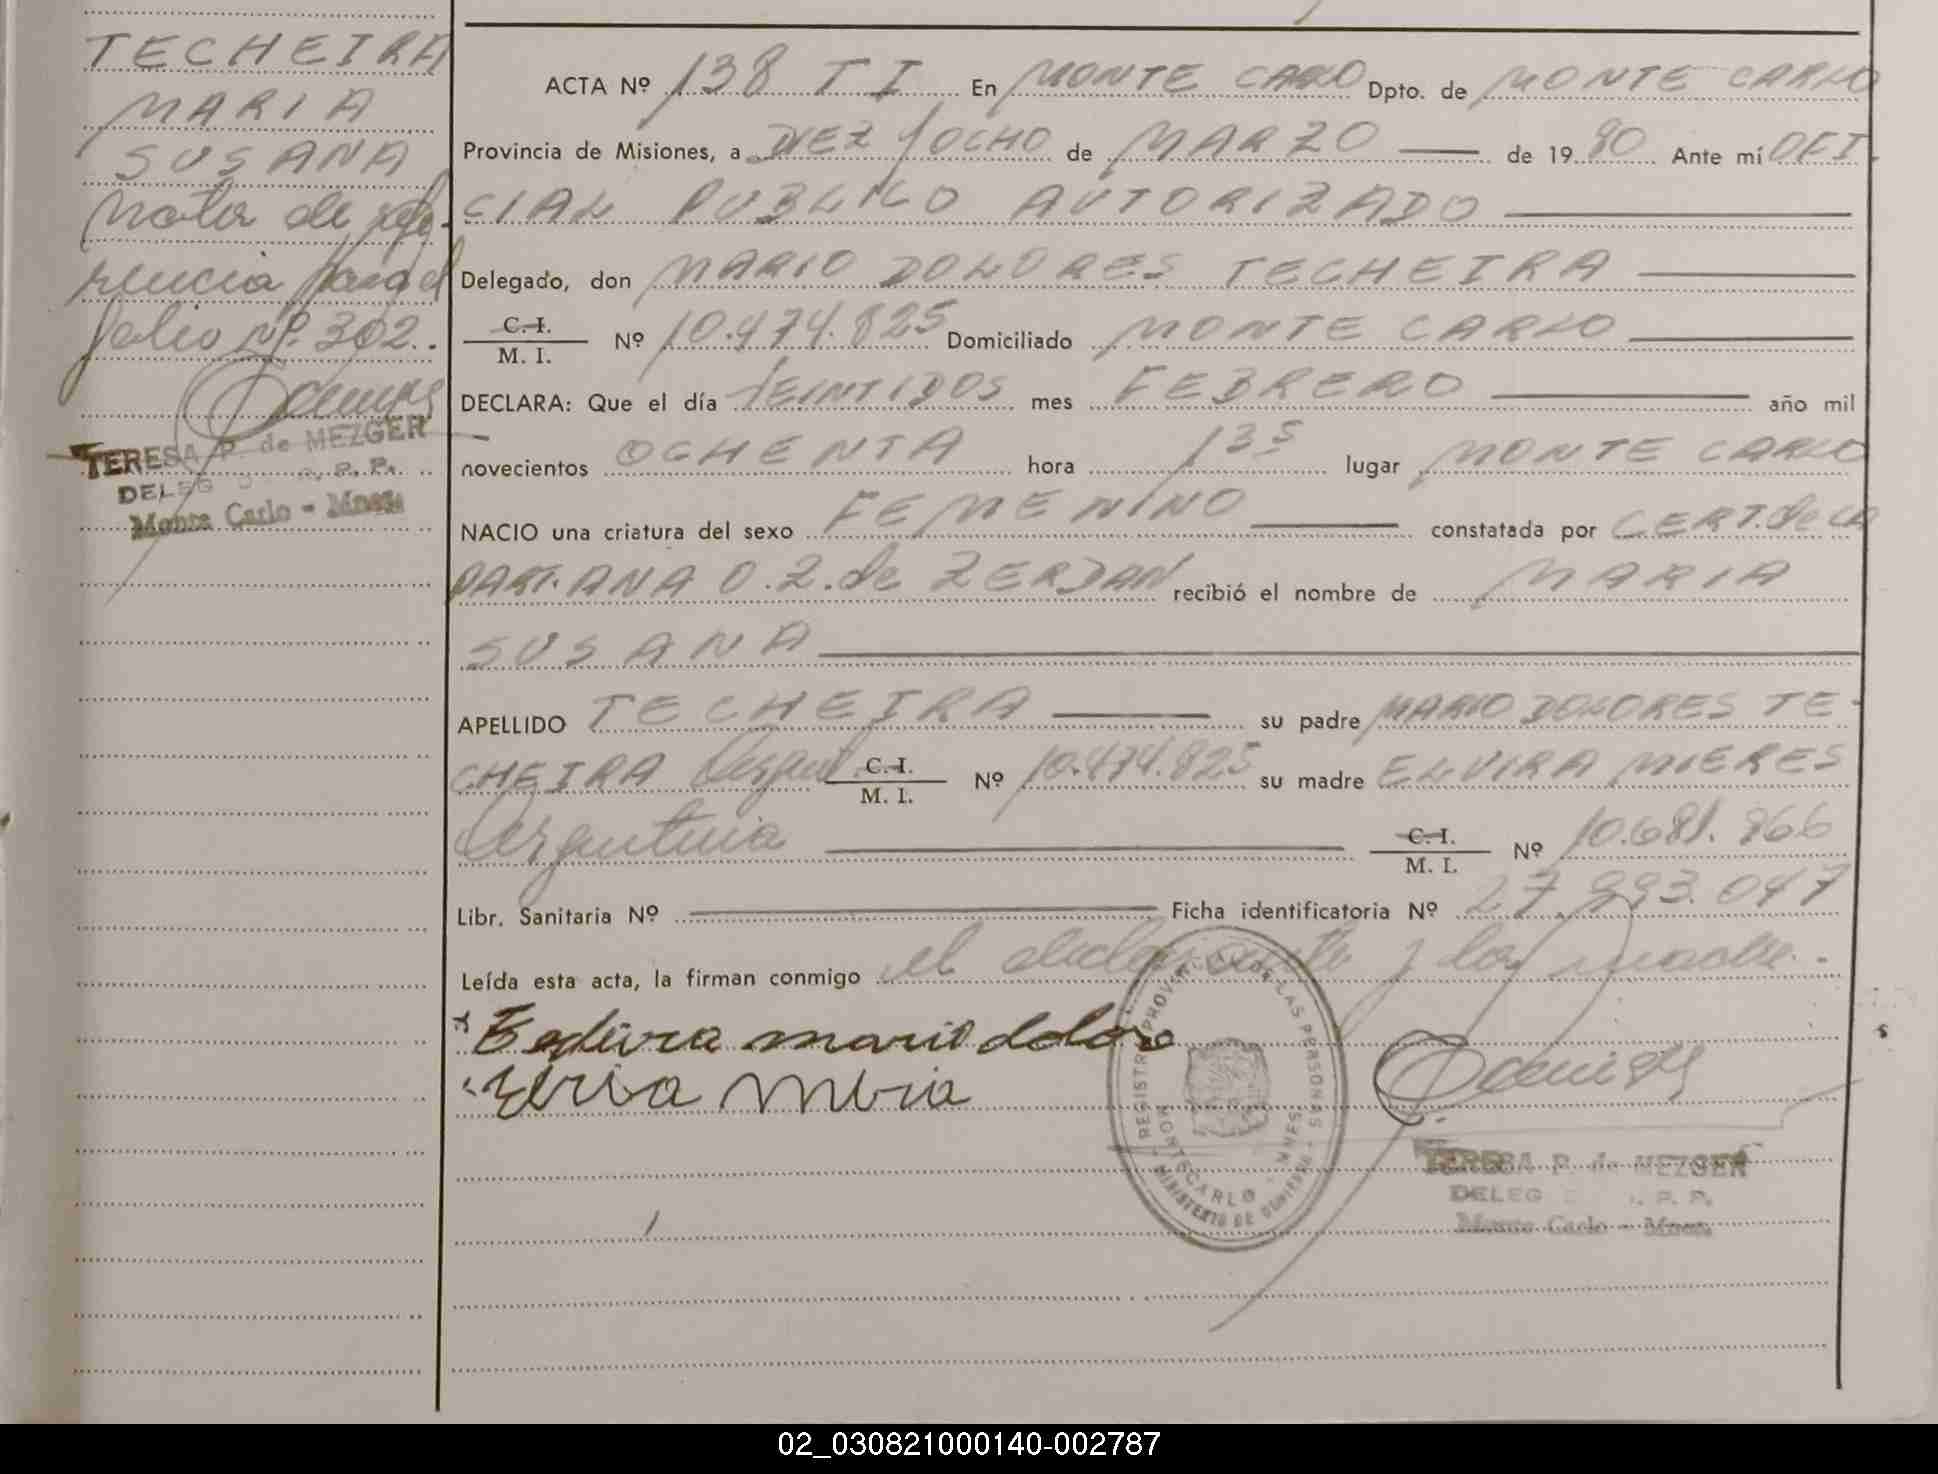 TECHEIRA
MARIA
SUSANA
Nota de refe-
rencia pasa al
folio Nº 302.
TERESA P. de MEZGER
DELEG R. P. P.
Monte Carlo - Mnes
ACTA Nº 138 T I En MONTE CARLO Dpto. de MONTE CARLO
Provincia de Misiones, a DIEZ Y OCHO de MARZO de 19 80 Ante mí OFI-
CIAL PUBLICO AUTORIZADO
Delegado, don MARIO DOLORES TECHEIRA
C. I. M. I. Nº 10.474.825 Domiciliado MONTE CARLO
DECLARA: Que el día VEINTIDOS mes FEBRERO año mil
novecientos OCHENTA hora 1 35 lugar MONTE CARLO
NACIO una criatura del sexo FEMENINO constatada por CERT. de LA
PART. ANA O. Z. de ZERDAN recibió el nombre de MARIA
SUSANA
APELLIDO TECHEIRA su padre MARIO DOLORES TE-
CHEIRA Argent. C. I. M. I. Nº 10.474.825 su madre ELVIRA MIERES
Argentina C. I. M. I. Nº 10.681.966
Libr. Sanitaria Nº Ficha identificatoria Nº 27.993.047
Leída esta acta, la firman conmigo el declarante y la madre.
mario dolore
REGISTRO PROVINCIAL DE LAS PERSONAS
MONTECARLO - MNES.
MINISTERIO DE GOBIERNO
TERESA P. de MEZGER
DELEG R. P. P.
Monte Carlo - Mnes
02_030821000140-002787